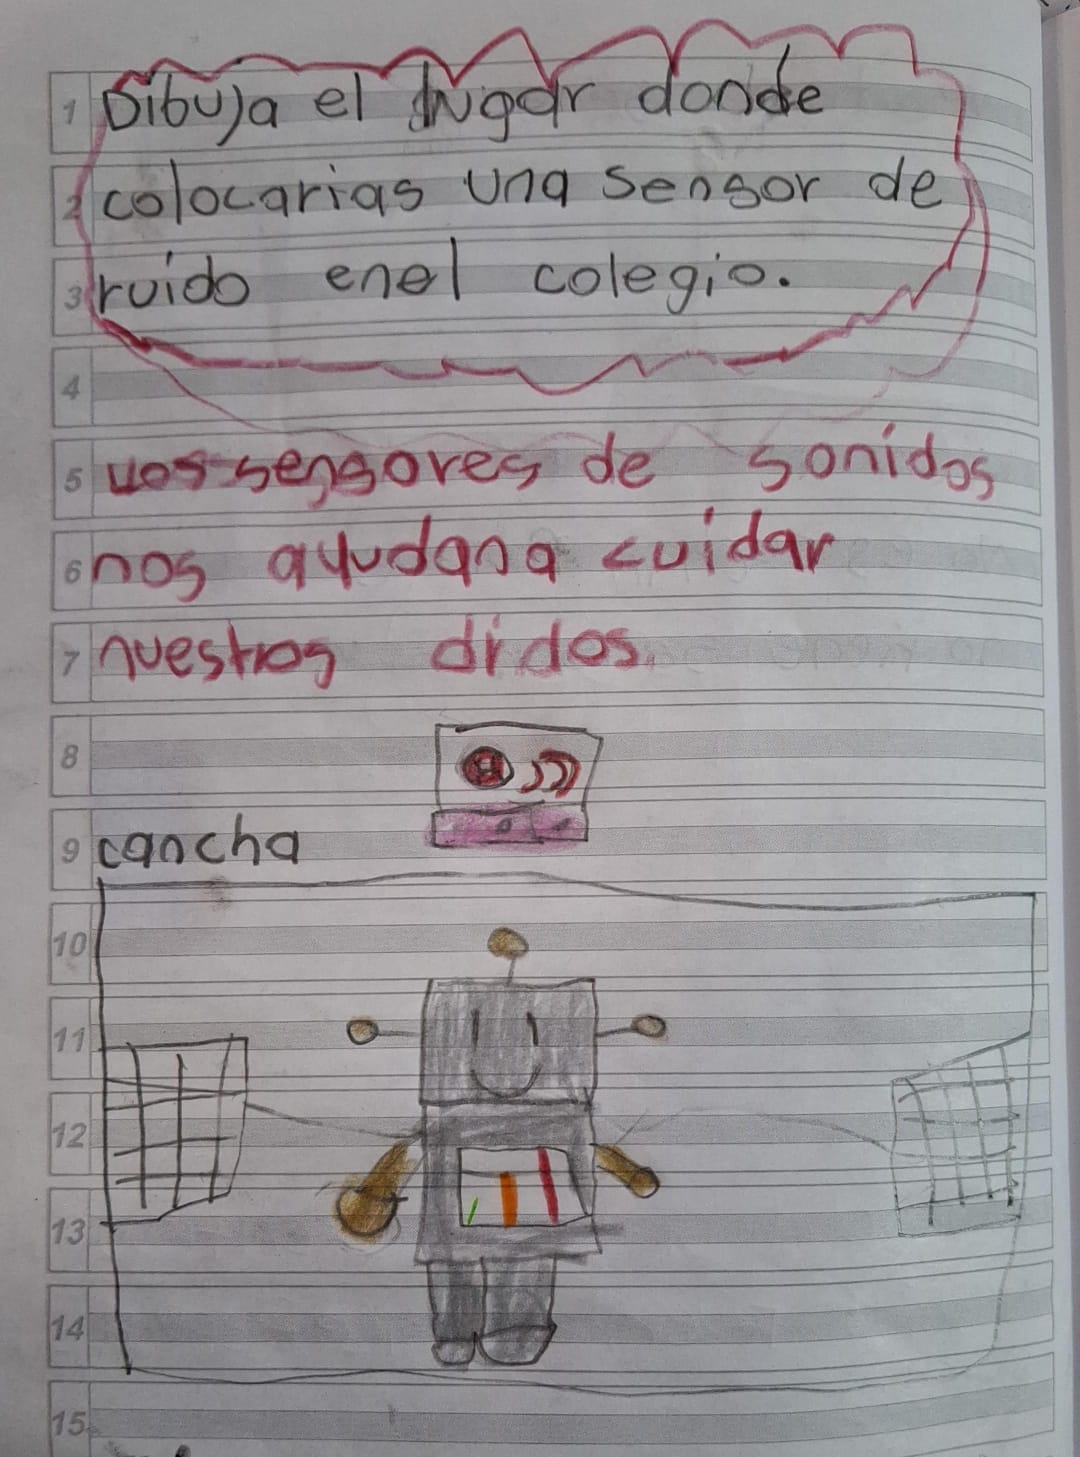 1 Dibuja el lugar donde
2 colocarias una sensor de
3 ruido enel colegio.
4
5 los sensores de sonidos
6 nos ayudan a cuidar
7 nuestros didos.
8
9 cancha
10
11
12
13
14
15